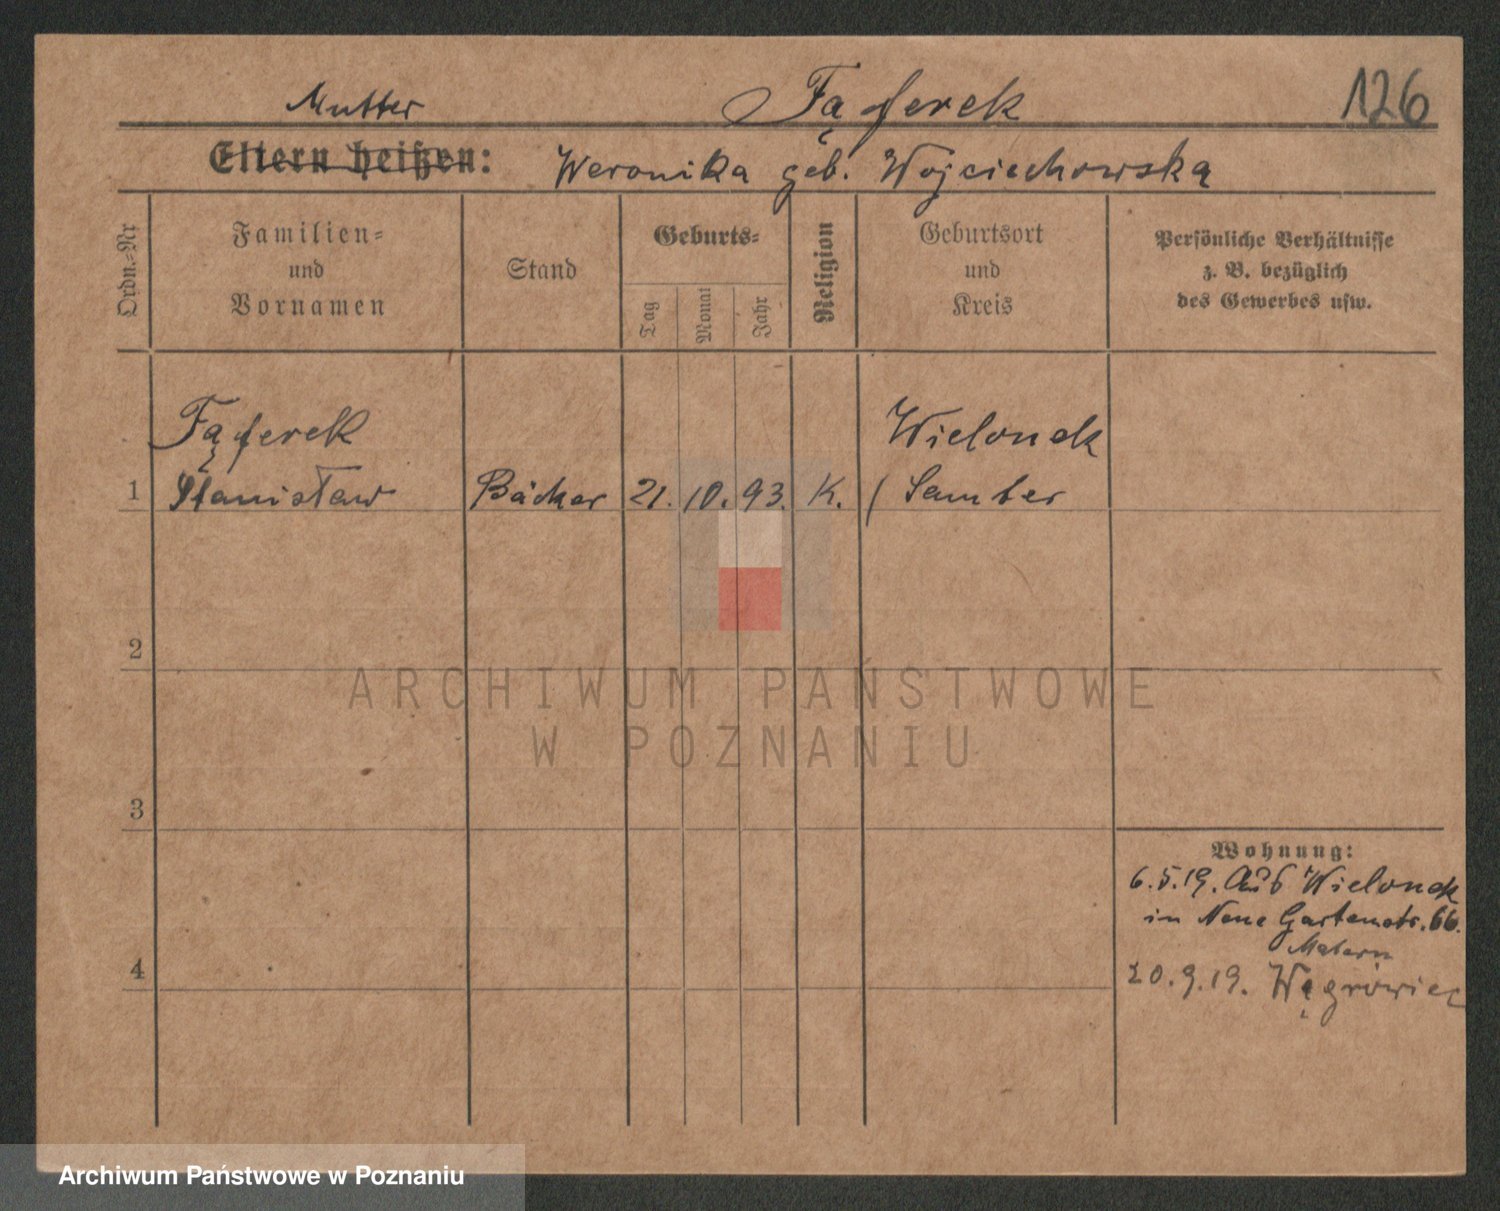 Mutter Fąferek 126
Eltern heißen: Weronika geb. Wojciechowską
Ordn.-Nr
Familien-
und
Vornamen
Stand
Geburts-
Tag
Monat
Jahr
Religion
Geburtsort
und
Kreis
Persönliche Verhältnisse
z. B. bezüglich
des Gewerbes usw.
Fąferek Wielonek
1 Stanisław Bäcker 21. 10. 93. K. ( Samter
2
ARCHIWUM PAŃSTWOWE
W POZNANIU
3
Wohnung:
6.5.19. Aus Wielonek
in Neue Gartenstr. 66.
4
20.9.19. Wągrówiec
Archiwum Państwowe w Poznaniu